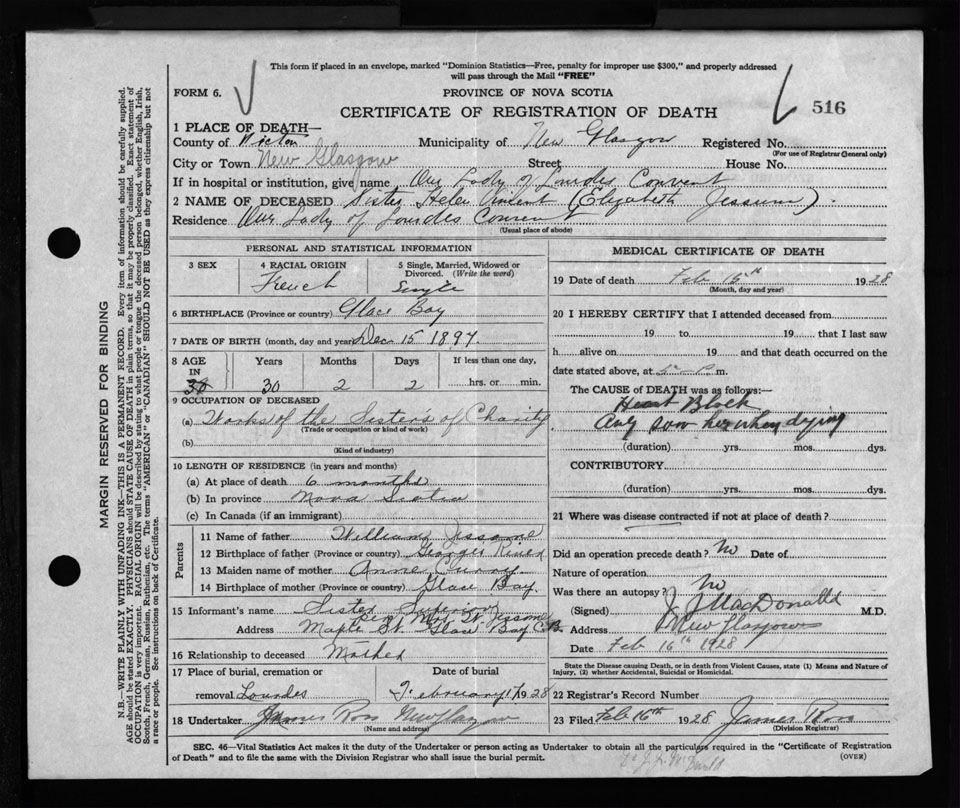 This form if placed in an envelope, marked "Dominion Statistics—Free, penalty for improper use $300," and properly addressed
will pass through the Mail "FREE"
FORM 6.
PROVINCE OF NOVA SCOTIA
CERTIFICATE OF REGISTRATION OF DEATH
516
1 PLACE OF DEATH—
County of Pictou Municipality of New Glasgow Registered No.
(For use of Registrar General only)
City or Town New Glasgow Street House No.
If in hospital or institution, give name Our Lady of Lourdes Convent
2 NAME OF DECEASED Sister Helen Vincent (Elizabeth Jessum)
Residence Our Lady of Lourdes Convent
(Usual place of abode)
PERSONAL AND STATISTICAL INFORMATION
3 SEX
4 RACIAL ORIGIN French
5 Single, Married, Widowed or Divorced. (Write the word) Single
6 BIRTHPLACE (Province or country) Glace Bay
7 DATE OF BIRTH (month, day and year) Dec 15 1897
8 AGE IN 30 Years 30 Months 2 Days 2 If less than one day, hrs. or min.
9 OCCUPATION OF DECEASED
(a) Works of the Sister's of Charity
(Trade or occupation or kind of work)
(b)
(Kind of industry)
10 LENGTH OF RESIDENCE (in years and months)
(a) At place of death 6 months
(b) In province Nova Scotia
(c) In Canada (if an immigrant)
Parents
11 Name of father William Jessome
12 Birthplace of father (Province or country) Georges River
13 Maiden name of mother Anne Curry
14 Birthplace of mother (Province or country) Glace Bay.
15 Informant's name Sister Superior
Jessome
Address Maple St. Glace Bay C.B.
16 Relationship to deceased Mother
17 Place of burial, cremation or removal Lourdes
Date of burial February 17 1928
18 Undertaker James Ross New Glasgow
(Name and address)
MEDICAL CERTIFICATE OF DEATH
19 Date of death Feb 16th 1928
(Month, day and year)
20 I HEREBY CERTIFY that I attended deceased from
19 to 19 that I last saw
h alive on 19 and that death occurred on the
date stated above, at P. m.
The CAUSE of DEATH was as follows:—
Heart Block
only saw her when dying
(duration) yrs. mos. dys.
CONTRIBUTORY
(duration) yrs. mos. dys.
21 Where was disease contracted if not at place of death?
Did an operation precede death? No Date of
Nature of operation
Was there an autopsy? No
(Signed) J. J. MacDonald M.D.
Address New Glasgow
Date Feb 16th 1928
State the Disease causing Death, or in death from Violent Causes, state (1) Means and Nature of
Injury, (2) whether Accidental, Suicidal or Homicidal.
22 Registrar's Record Number
23 Filed Feb 16th 1928 James Ross
(Division Registrar)
SEC. 46—Vital Statistics Act makes it the duty of the Undertaker or person acting as Undertaker to obtain all the particulars required in the "Certificate of Registration
of Death" and to file the same with the Division Registrar who shall issue the burial permit.
(OVER)
MARGIN RESERVED FOR BINDING
N.B.—WRITE PLAINLY WITH UNFADING INK—THIS IS A PERMANENT RECORD. Every item of information should be carefully supplied.
AGE should be stated EXACTLY. PHYSICIANS should STATE CAUSE OF DEATH in plain terms, so that it may be properly classified. Exact statement of
OCCUPATION is very important. RACIAL ORIGIN will be described by stating to what people or tongue the deceased person belonged, whether English, Irish,
Scotch, French, German, Russian, Ruthenian, etc. The terms "AMERICAN" or "CANADIAN" SHOULD NOT BE USED as they express citizenship but not
a race or people. See instructions on back of Certificate.